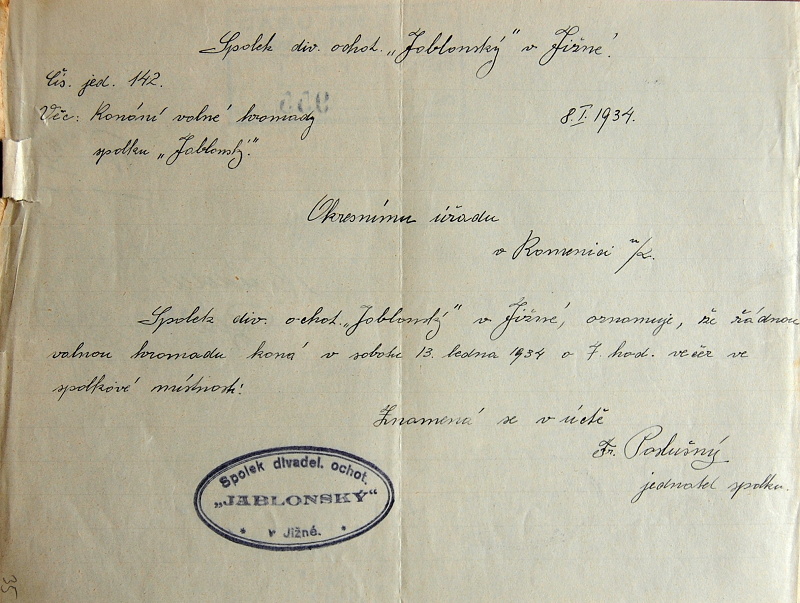 Spolek div. ochot. „Jablonský“ v Jižné.
Čís. jed. 142.
Věc: Konání valné hromady
8. I. 1934.
spolku „Jablonský.“
Okresnímu úřadu
v Kamenici n/L.
Spolek div. ochot. „Jablonský“ v Jižné, oznamuje, že řádnou
valnou hromadu koná v sobotu 13. ledna 1934 o 7. hod. večer ve
spolkové místnosti.
Znamená se v úctě
Fr. Poslušný
jednatel spolku.
Spolek divadel. ochot.
„JABLONSKÝ“
* v Jižné. *
955
35